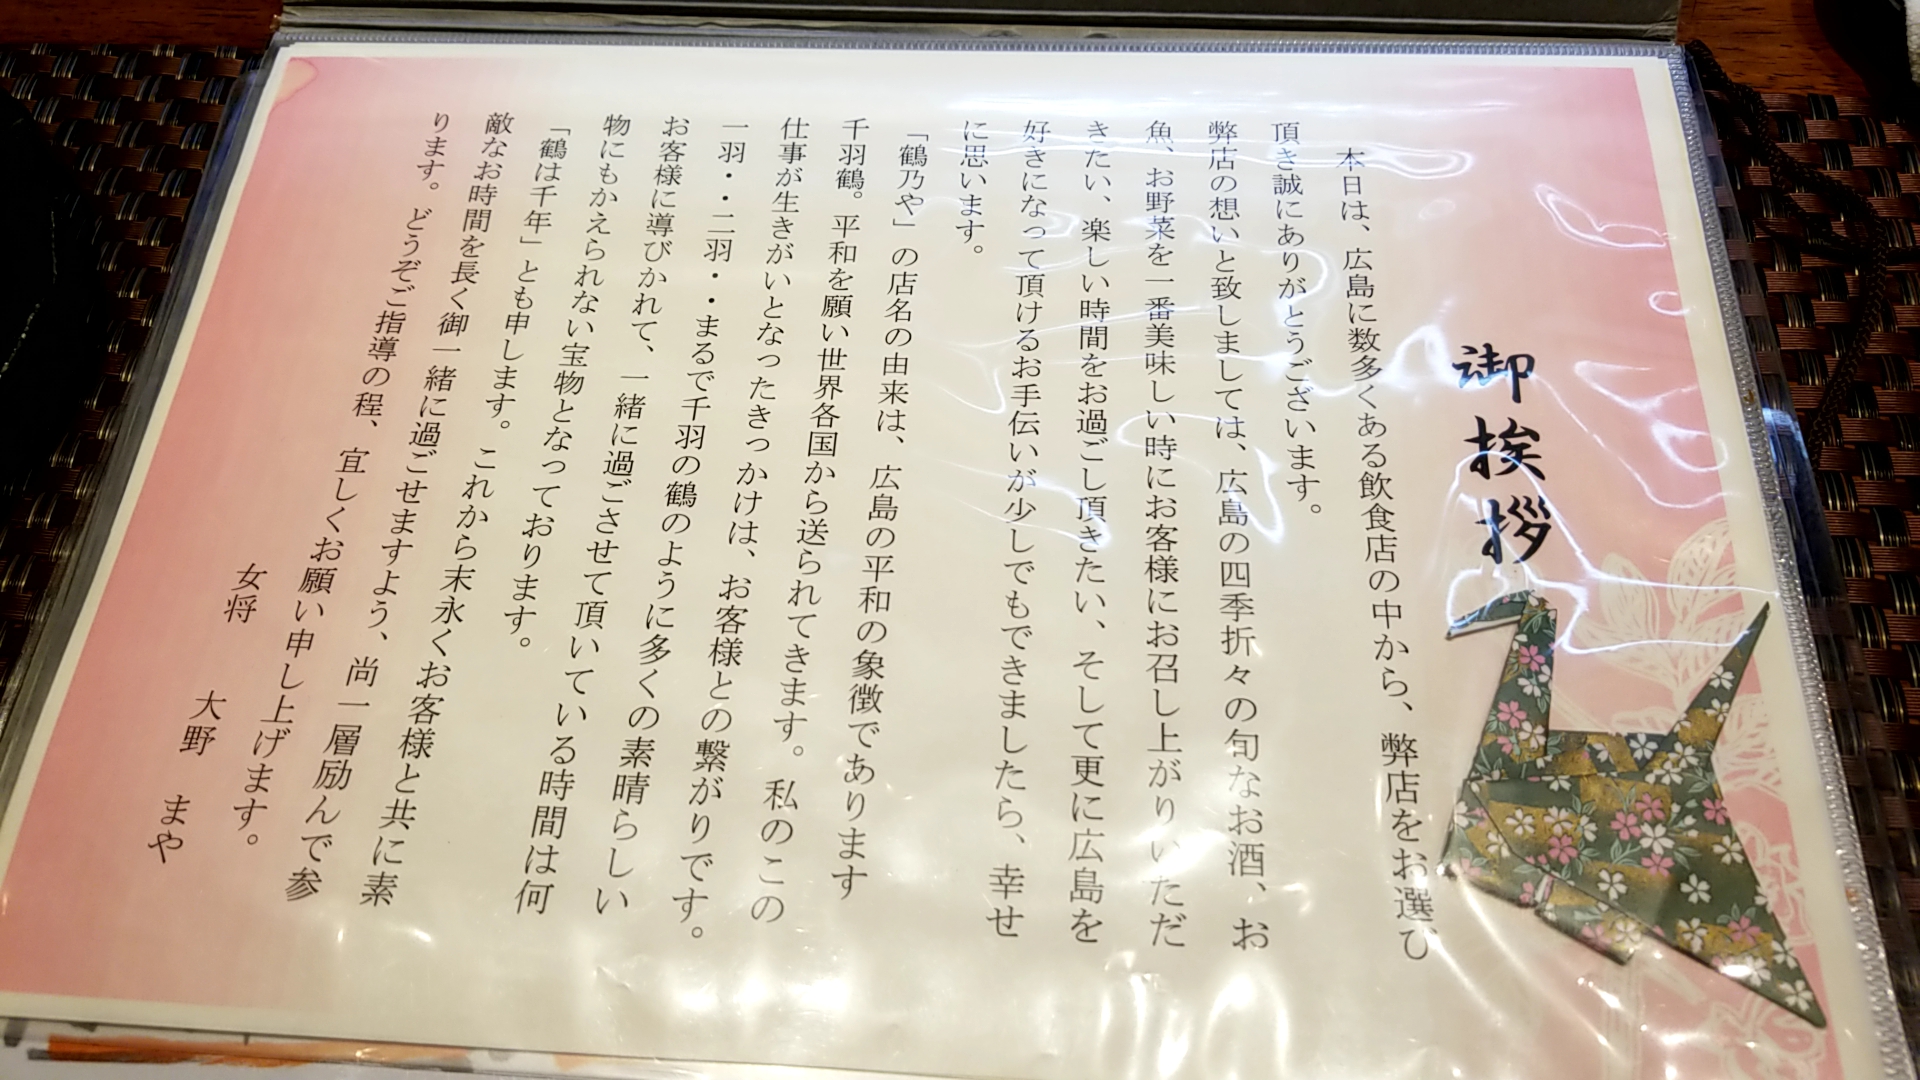 御挨拶
本日は、広島に数多くある飲食店の中から、弊店をお選び
頂き誠にありがとうございます。
弊店の想いと致しましては、広島の四季折々の旬なお酒、お
魚、お野菜を一番美味しい時にお客様にお召し上がりいただ
きたい、楽しい時間をお過ごし頂きたい、そして更に広島を
好きになって頂けるお手伝いが少しでもできましたら、幸せ
に思います。
「鶴乃や」の店名の由来は、広島の平和の象徴であります
千羽鶴。平和を願い世界各国から送られてきます。私のこの
仕事が生きがいとなったきっかけは、お客様との繋がりです。
一羽・・二羽・・まるで千羽の鶴のように多くの素晴らしい
お客様に導びかれて、一緒に過ごさせて頂いている時間は何
物にもかえられない宝物となっております。
「鶴は千年」とも申します。これから末永くお客様と共に素
敵なお時間を長く御一緒に過ごせますよう、尚一層励んで参
ります。どうぞご指導の程、宜しくお願い申し上げます。
女将　大野　まや